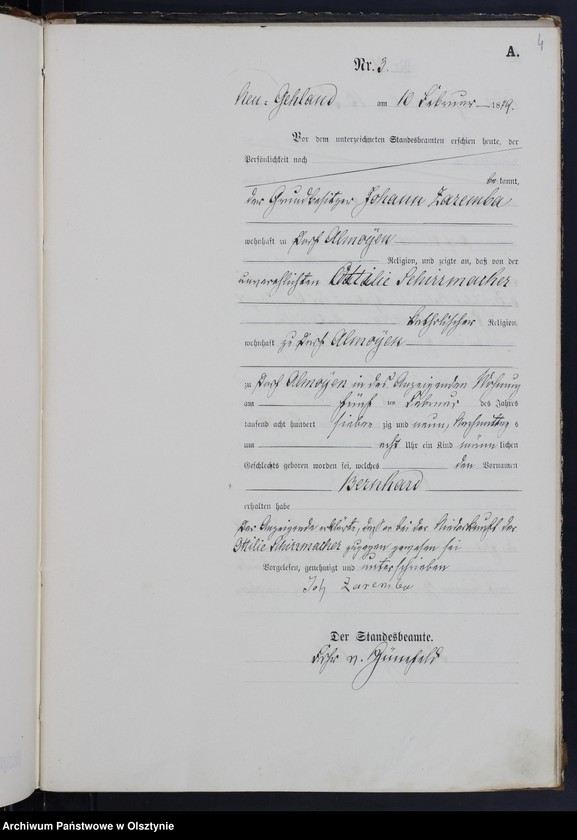 4
A.
Nr. 3.
Neu-Gehland am 10 Februar 1879.
Vor dem unterzeichneten Standesbeamten erschien heute, der
Persönlichkeit nach
be kannt,
der Grundbesitzer Johann Zaremba
wohnhaft zu Dorf Almoyen
Religion, und zeigte an, daß von der
unverehelichten Ottilie Schirrmacher
katholischer Religion
wohnhaft zu Dorf Almoyen
zu Dorf Almoyen in des Anzeigenden Wohnung
am fünf ten Februar des Jahres
tausend acht hundert sieben zig und neun, Nachmittags
um acht Uhr ein Kind männ lichen
Geschlechts geboren worden sei, welches den Vornamen
Bernhard
erhalten habe
Der Anzeigende erklärte, daß er bei der Niederkunft der
Ottilie Schirrmacher zugegen gewesen sei
Vorgelesen, genehmigt und unterschrieben
Joh Zaremba
Der Standesbeamte.
v.
Archiwum Państwowe w Olsztynie